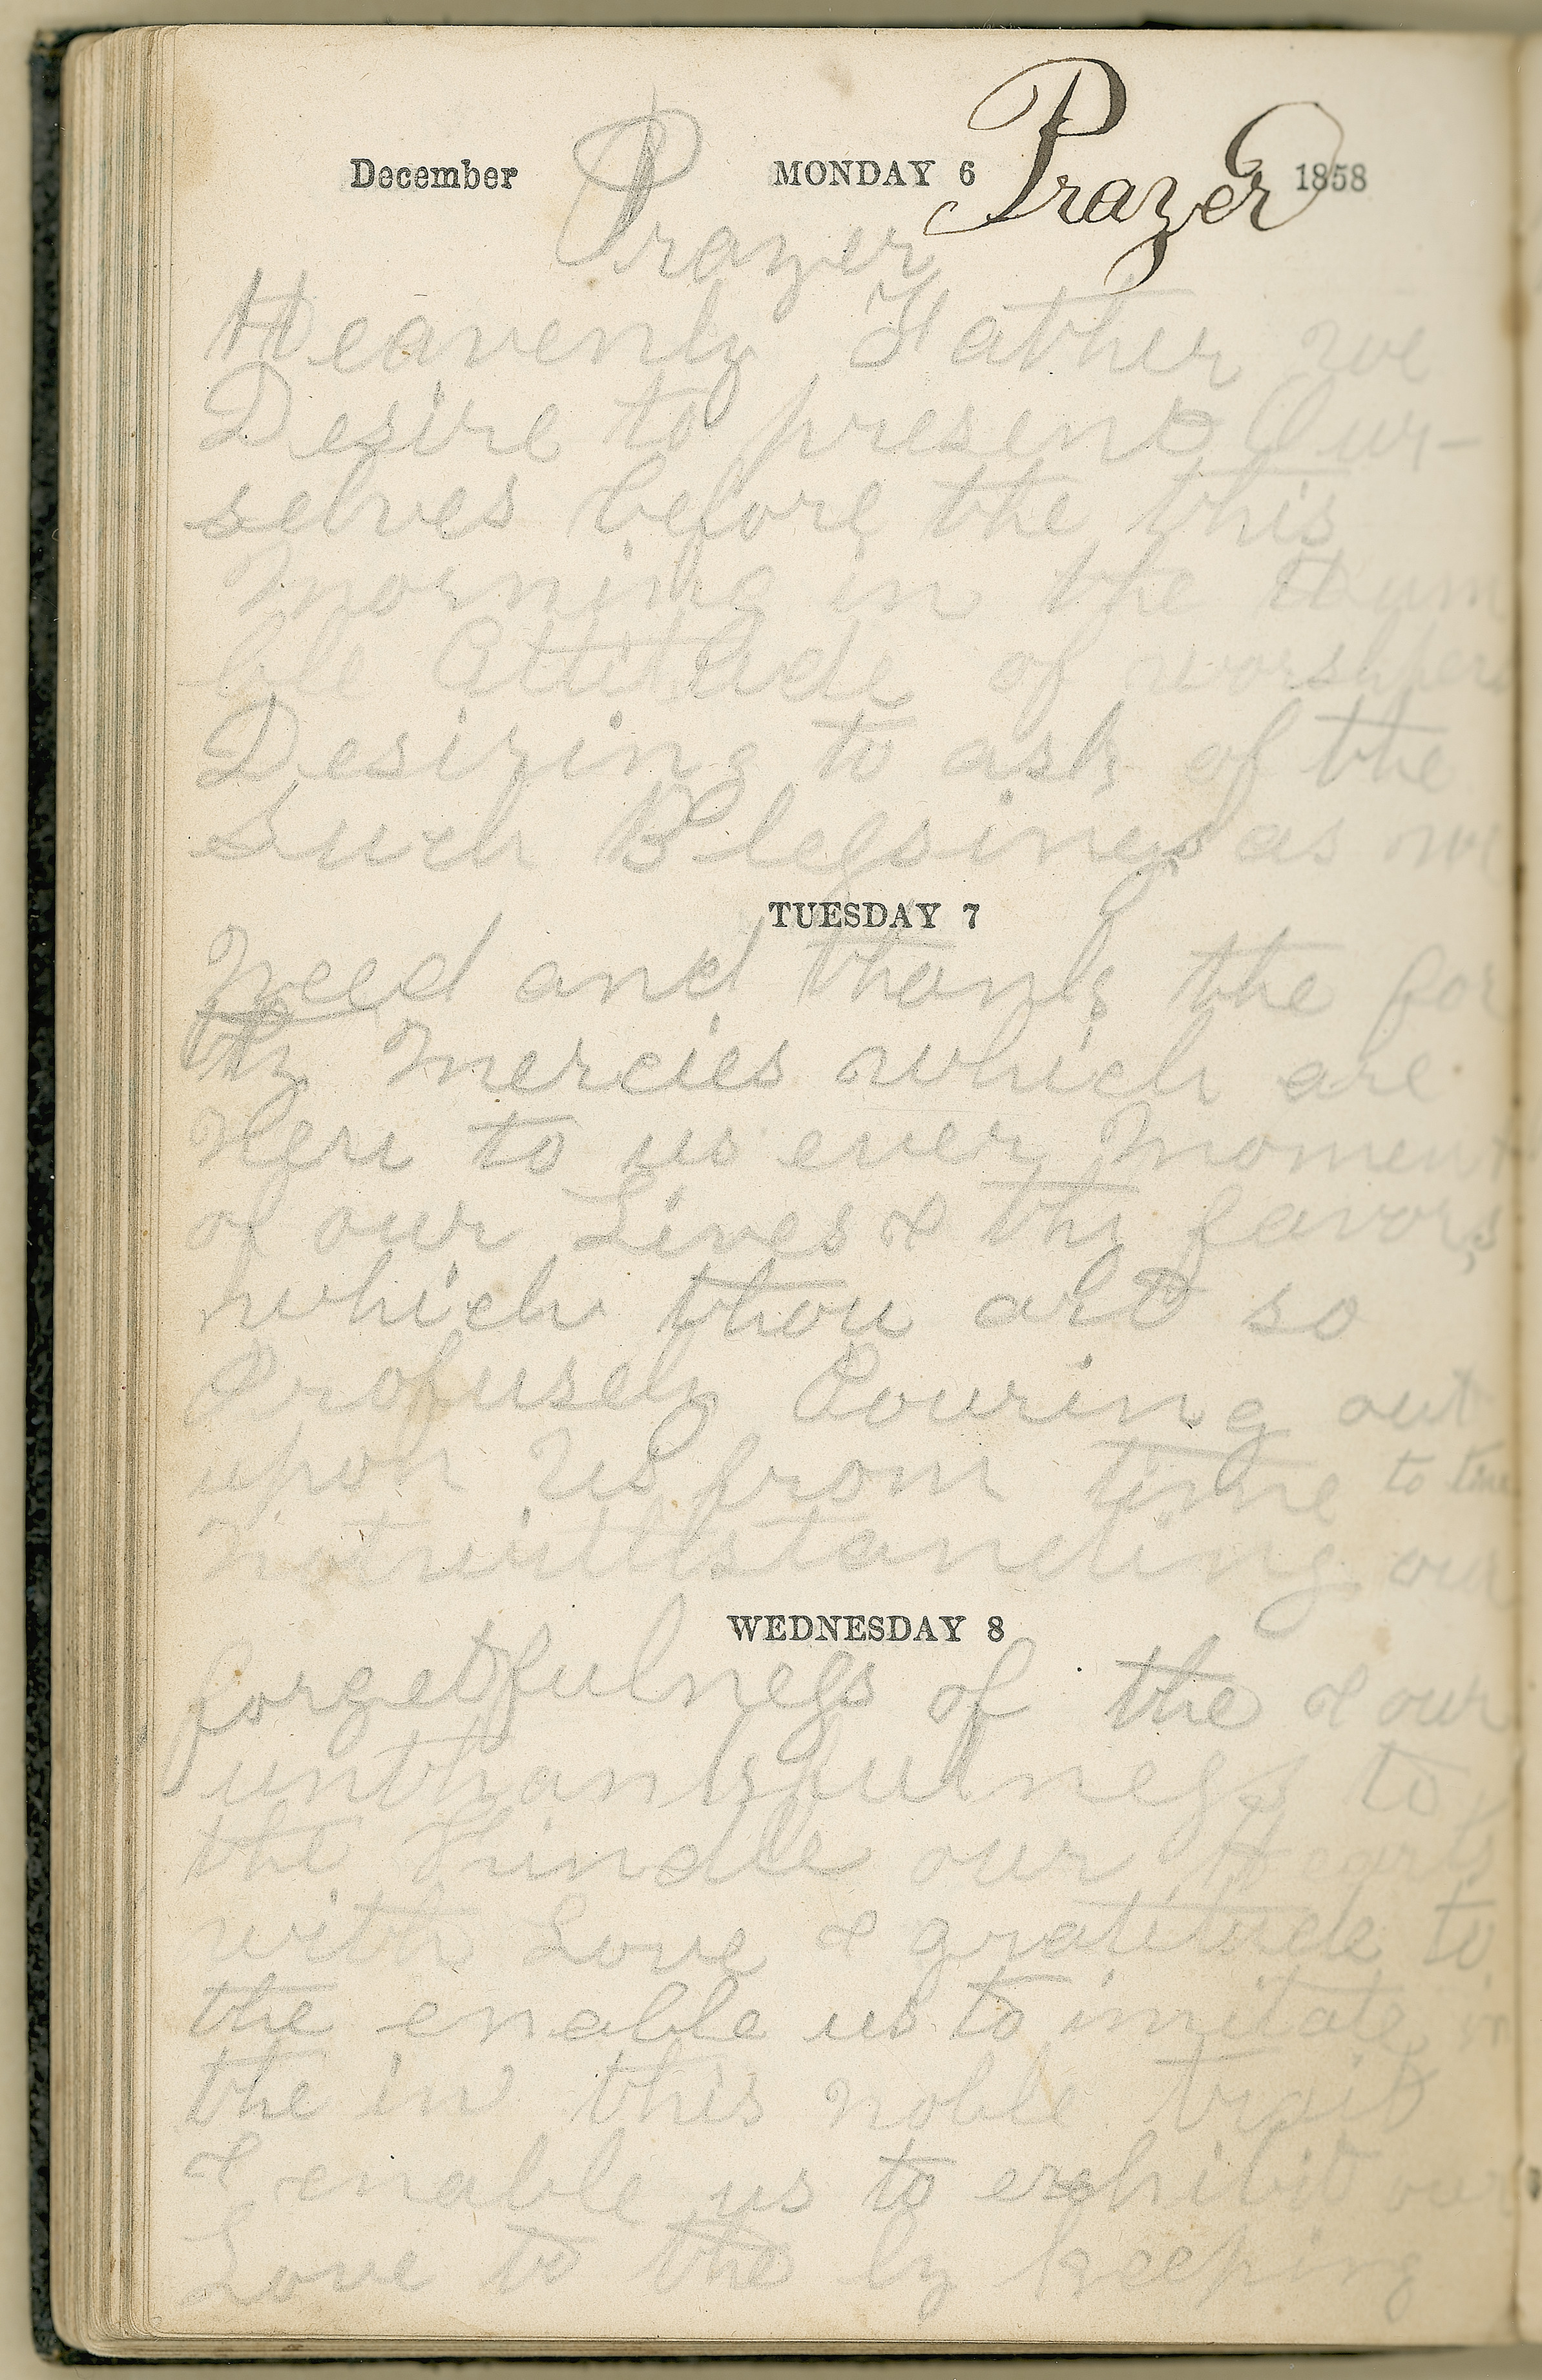 December MONDAY 6 Prayer 1858
Prayer
Heavenly Father we
Desire to present Our-
selves before the this
Morning in the Hum
ble Attitude of worshipers
Desiring to ask of the
Such Blessings as we
TUESDAY 7
Need and thank the for
thy Mercies which are
New to us ever Moment
of our Lives & the favors
which thou art so
Profusely Pouring out
upon us from time to time
Notwithstanding our
WEDNESDAY 8
forgetfulness of the & our
unthankfulness to
the Kindle our Hearts
with Love & gratitude to
the enable us to imitate
the in this noble trait
& enable us to exhibit our
Love to the by keeping